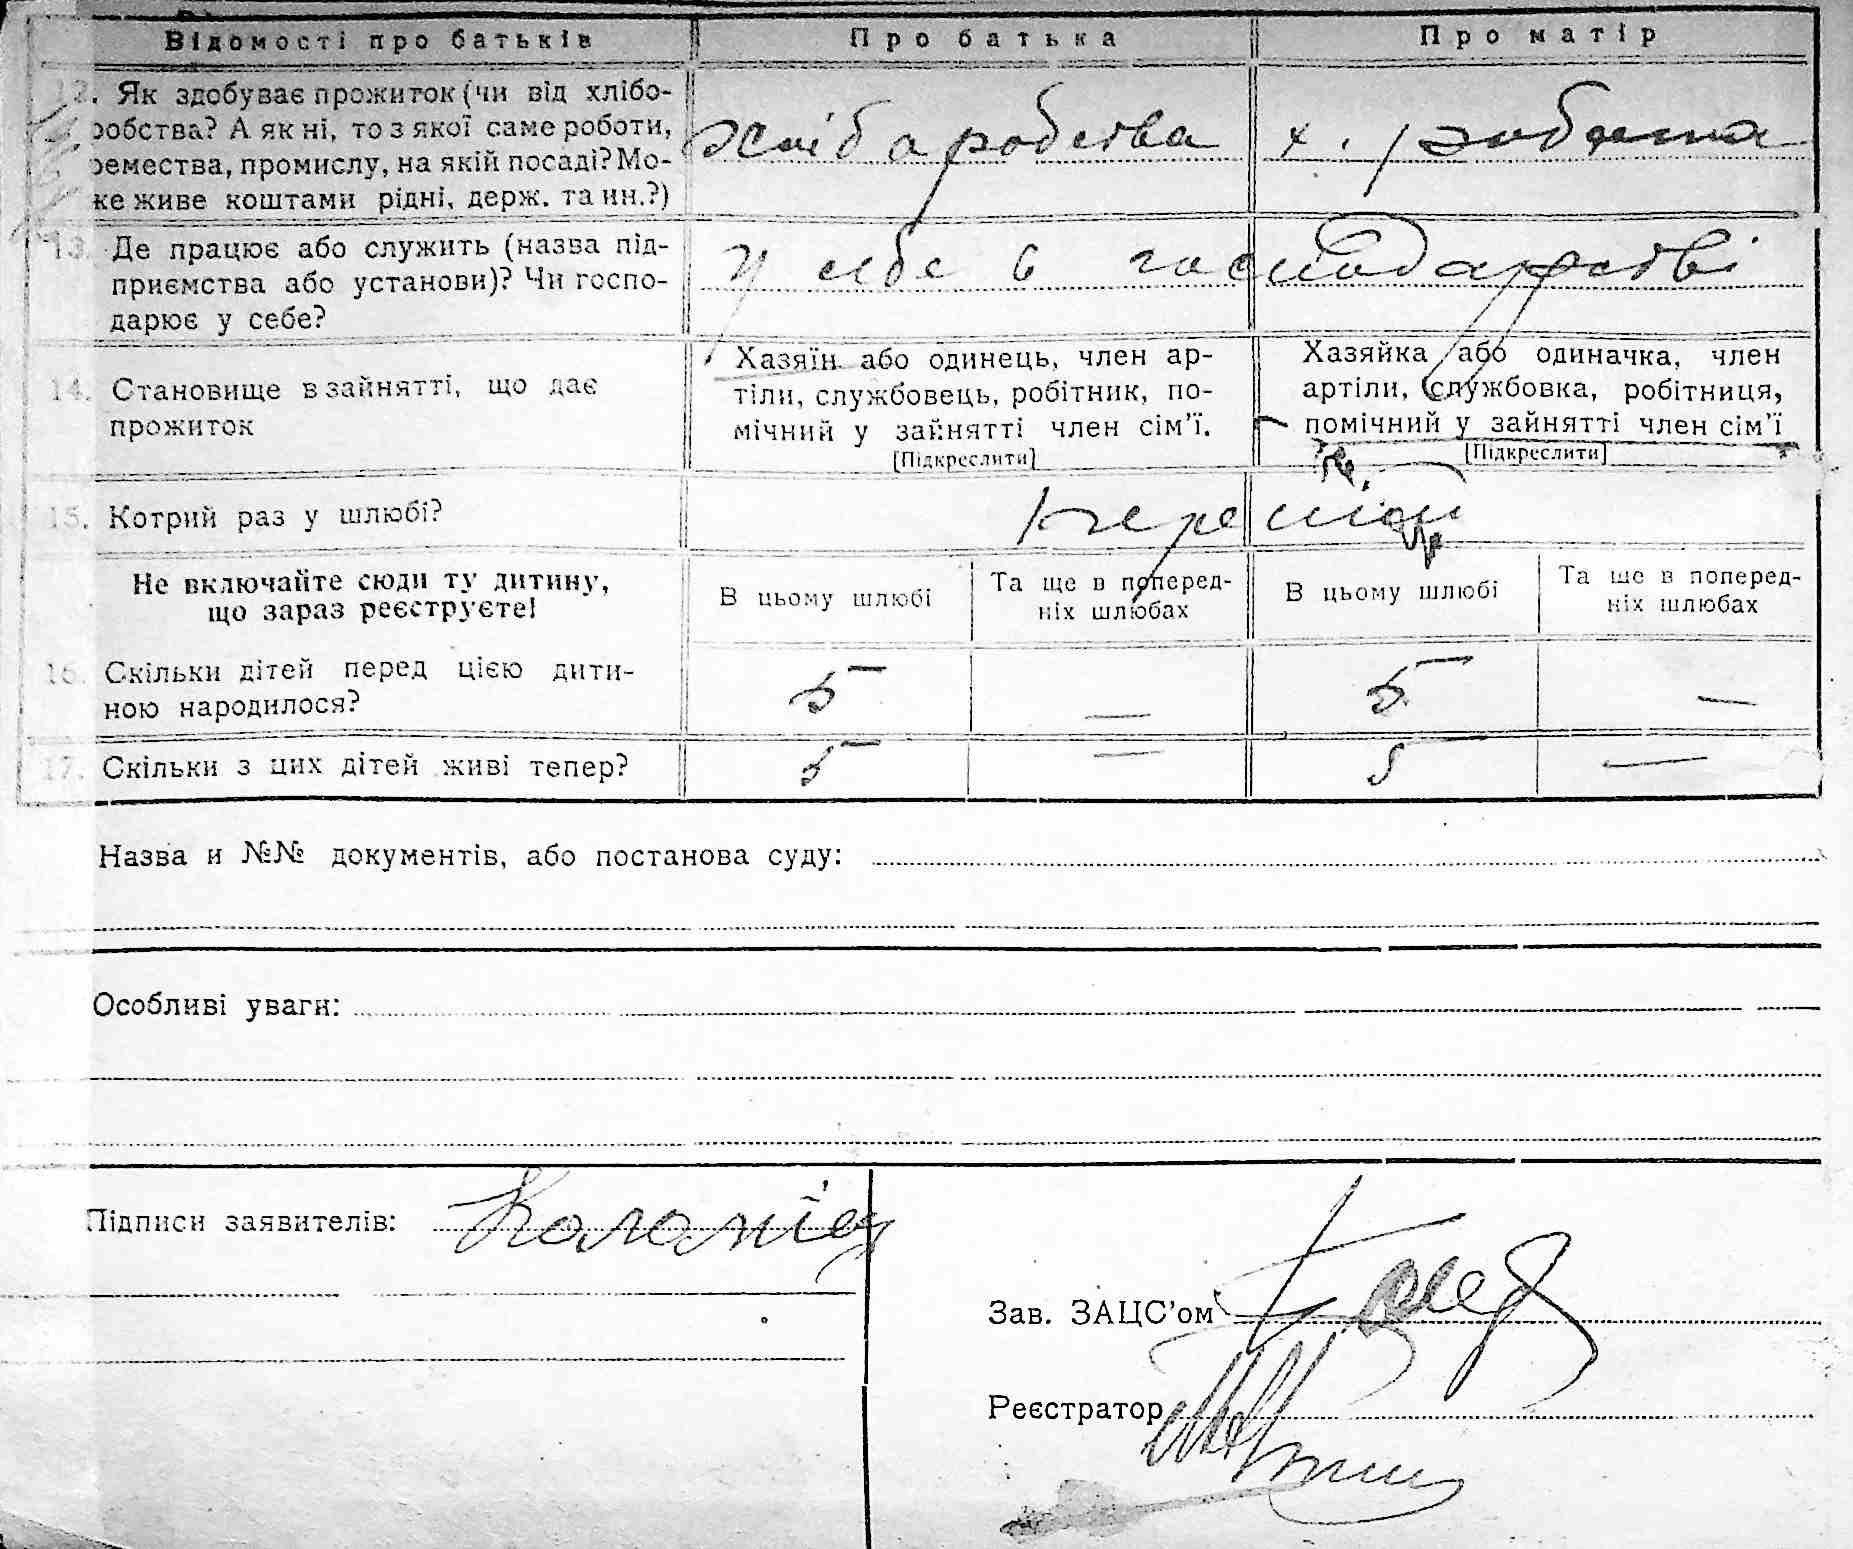 Відомості про батьків Про батька Про матір
12. Як здобуває прожиток (чи від хлібо-
робства? А як ні, то з якої саме роботи,
ремества, промислу, на якій посаді? Мо-
же живе коштами рідні, держ. та ин.?)
хлібаробства х. робота
13. Де працює або служить (назва під-
приємства або установи)? Чи госпо-
дарює у себе?
у себе в господарстві
14. Становище в зайнятті, що дає
прожиток
Хазяїн або одинець, член ар-
тіли, службовець, робітник, по-
мічний у зайнятті член сім'ї.
[Підкреслити]
Хазяйка або одиначка, член
артіли, службовка, робітниця,
помічний у зайнятті член сім'ї
[Підкреслити]
15. Котрий раз у шлюбі?
Не включайте сюди ту дитину,
що зараз реєструєте!
В цьому шлюбі
Та ще в поперед-
ніх шлюбах
В цьому шлюбі
Та ще в поперед-
ніх шлюбах
16. Скільки дітей перед цією дити-
ною народилося?
5 — 5 —
17. Скільки з цих дітей живі тепер? 5 — 5 —
Назва и №№ документів, або постанова суду:
Особливі уваги:
Підписи заявителів: Коломієц
Зав. ЗАЦС'ом
Реєстратор